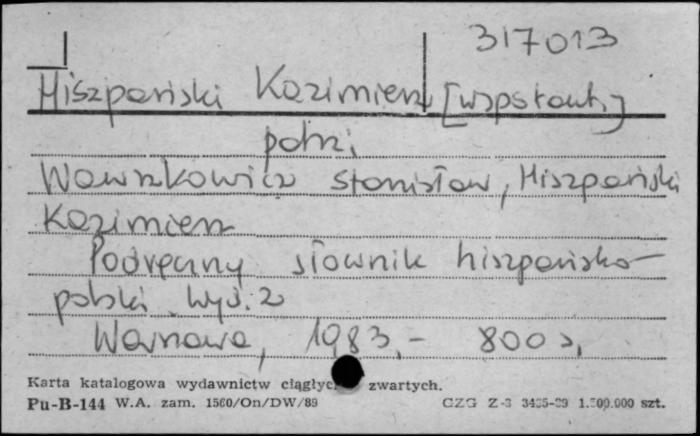 317013
Hiszpański Kazimierz [współaut.]
patrz:
Wawrzkowicz Stanisław, Hiszpański
Kazimierz
Podręczny słownik hiszpańsko-
polski. Wyd. 2
Warszawa, 1983,- 800 s,
Karta katalogowa wydawnictw ciągłych zwartych.
Pu-B-144 W.A. zam. 1560/On/DW/89 CZG Z-3 1.500.000 szt.